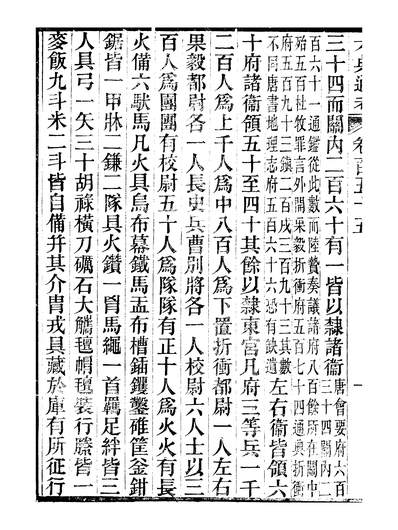 三十四而關內二百六十有一皆以隸諸衞
唐會要府六百
三十四關內二
百六十一通鑑從此數而陸贄奏議諸府八百餘所在關中
殆五百杜牧罪言外開果毅折衝府五百七十四通典折衝
府五百九十三鎮二百戍三百九十三其數
不同唐書地理志府五百六十六恐有缺遺
左右衞皆領六
十府諸衞領五十至四十其餘以隸東宮凡府三等兵一千
二百人爲上千人爲中八百人爲下置折衝都尉一人左右
果毅都尉各一人長史兵曹別將各一人校尉六人士以三
百人爲團團有校尉五十人爲隊隊有正十人爲火火有長
火備六馱馬凡火具烏布幕鐵馬盂布槽鍤钁鑿碓筐釜鉗
鋸皆一甲牀二鎌二隊具火鑽一胷馬繩一首羈足絆皆三
人具弓一矢三十胡祿橫刀礪石大觿氈帽氈裝行縢皆一
麥飯九斗米二斗皆自備并其介胄戎具藏於庫有所征行